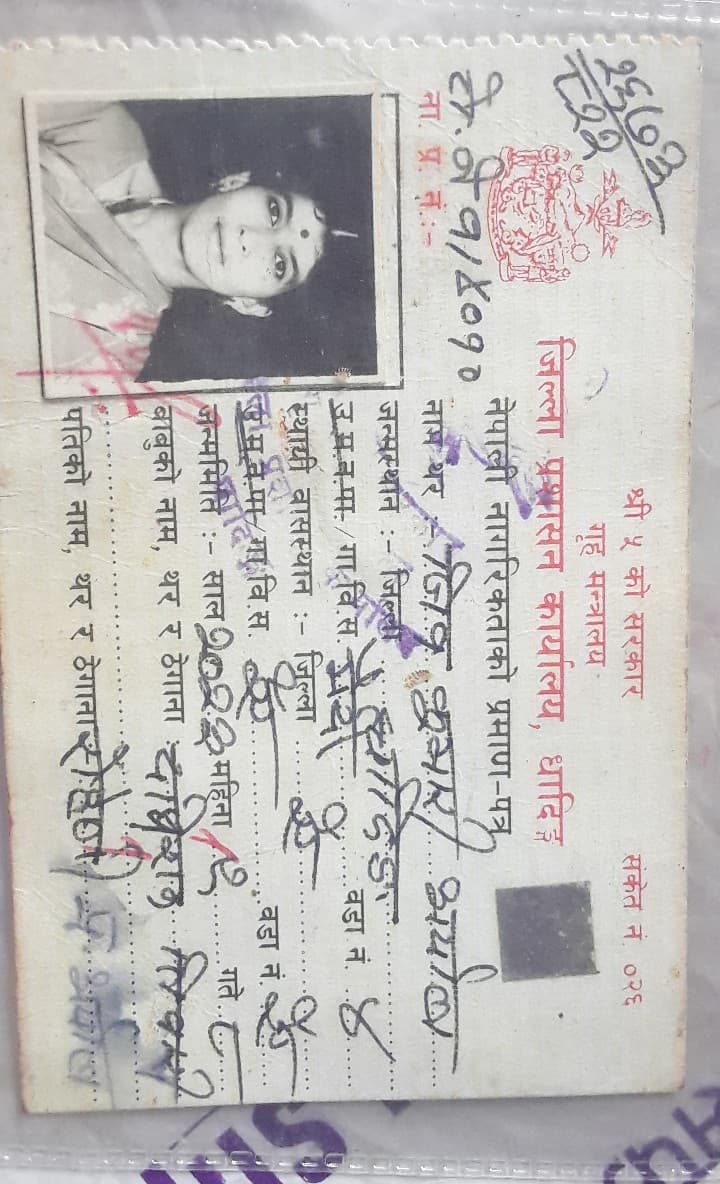 २६७३
८२२
श्री ५ को सरकार
संकेत नं. ०२६
गृह मन्त्रालय
जिल्ला प्रशासन कार्यालय, धादिङ्ग
नेपाली नागरिकताको प्रमाण-पत्र
१/४०१०
ना. प्र. नं.:-
नाम थर :- जिव कुमारी अर्याल
जन्मस्थान :- जिल्ला धादिङ
उ.म.न.पा./गा.वि.स. मैदी वडा नं. ४
स्थायी वासस्थान :- जिल्ला ऐ
उ.म.न.पा/गा.वि.स. ऐ वडा नं. ऐ
जन्ममिति :- साल २०२३ महिना गते ८
बाबुको नाम, थर र ठेगाना :
पतिको नाम, थर र ठेगाना प्र अर्याल